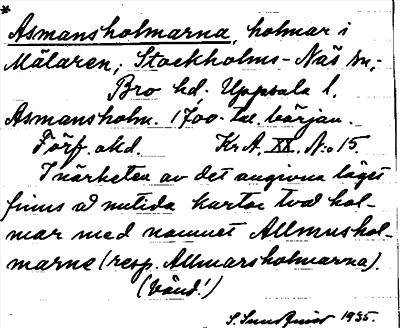 *
Asmansholmarna, holmar i
Mälaren; Stockholms-Näs sn,-
Bro hd. Uppsala l.
Asmansholm. 1700-tal. början.
Förf. okd. Kr.A. XX. N:o 15.
I närheten av det angivna läget
finns å nutida kartor två hol-
mar med namnet Allmushol-
marne (resp. Allmarsholmarna).
(Vänd!)
S. Sundquist 1935.